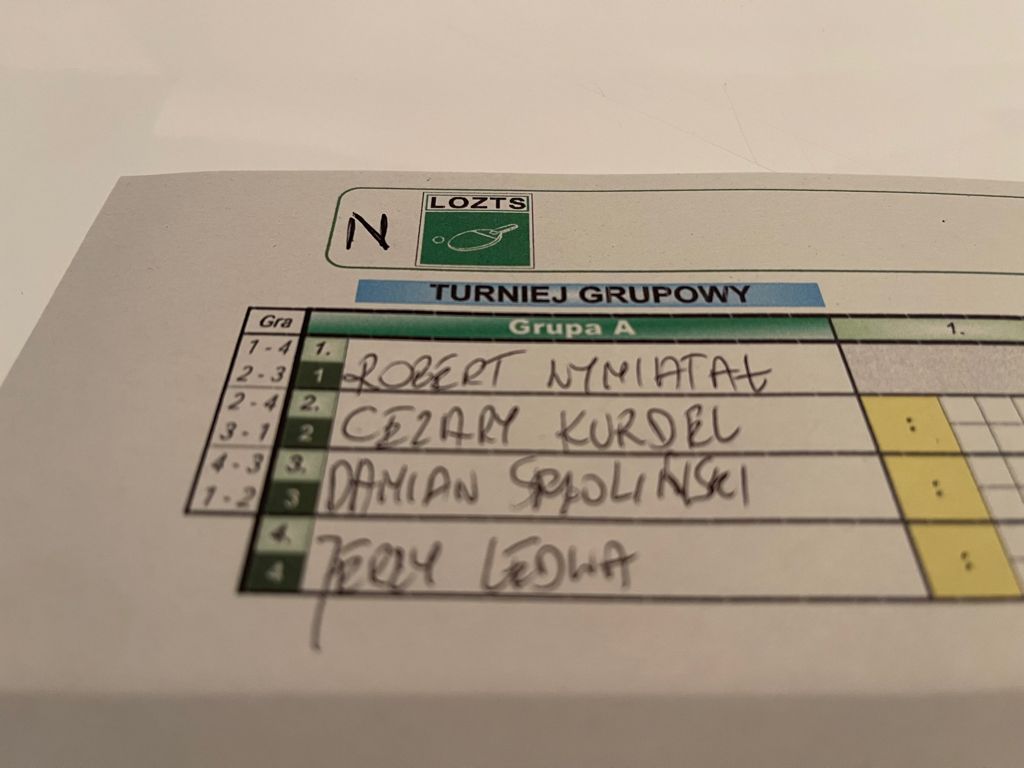 N
LOZTS
TURNIEJ GRUPOWY
Gra Grupa A 1.
1 - 4 1. ROBERT
2 - 3 1
2 - 4 2. CEZARY KURDEL
3 - 1 2 :
4 - 3 3. DAMIAN
1 - 2 3 :
4. JERZY LEDWA
4 :